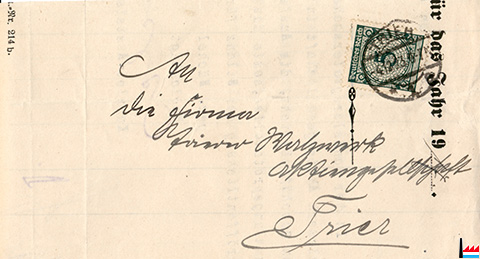 An
die Firma
Trierer Walzwerk
Aktiengesellschaft
Trier
für das Jahr 19
Nr. 214 b.
Deutsches Reich
5
TRIER